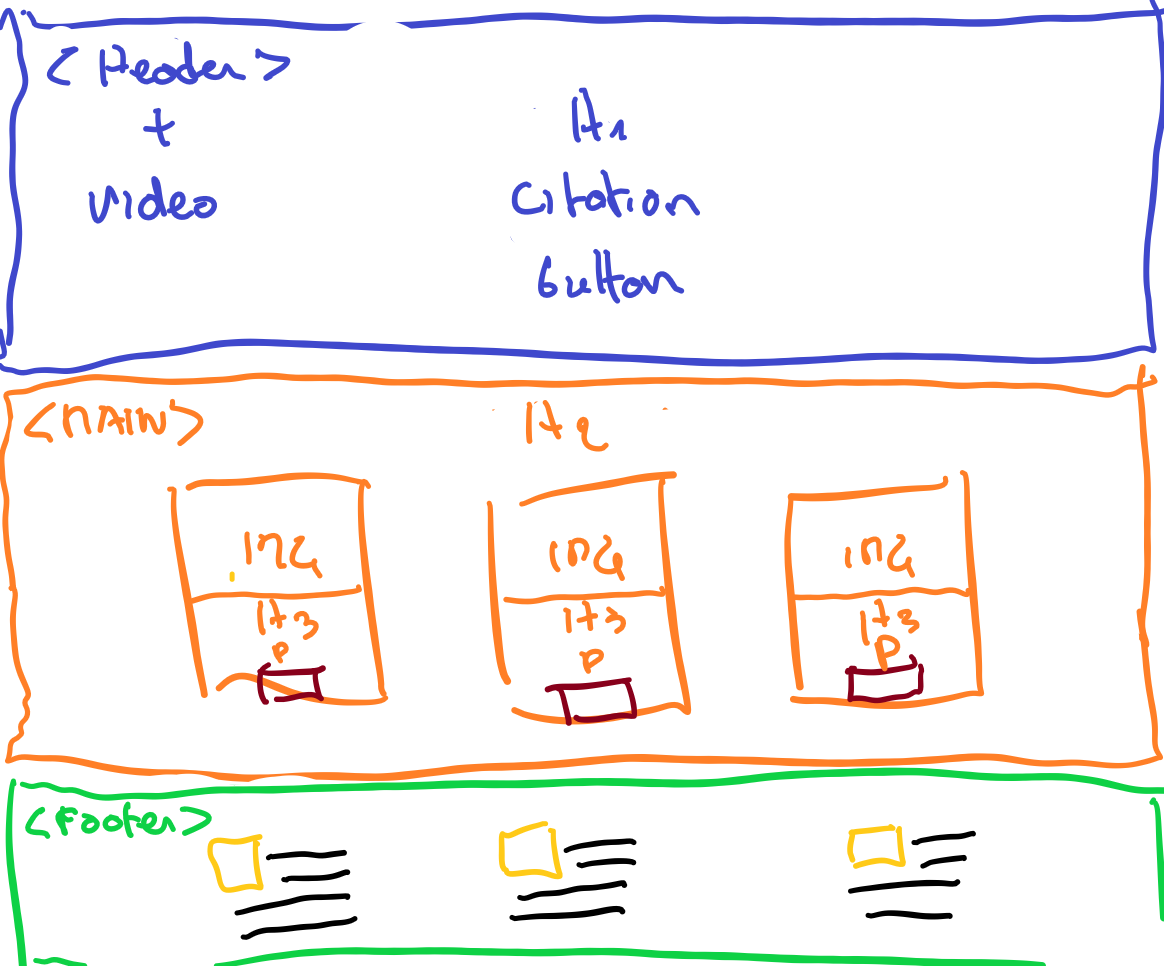 <Header>
+
video
H1
Citation
button
<MAIN>
H2
IMG
H3
P
IMG
H3
P
IMG
H3
P
<Footer>